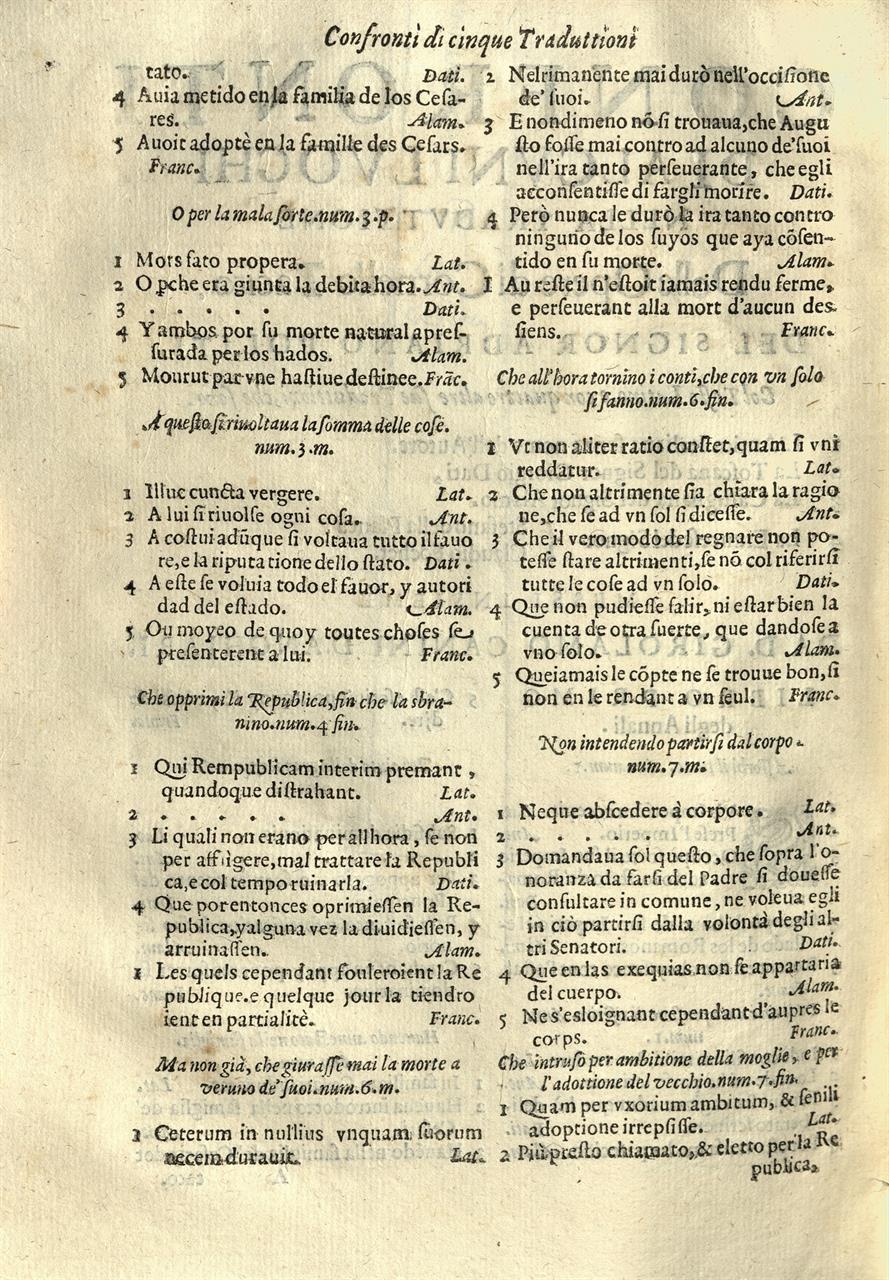 Confronti di cinque Traduttioni
tato. Dati.
4 Auia metido en la familia de los Cesa-
res. Alam.
5 Auoit adoptè en la famille des Cesars.
Franc.
O per la mala sorte.num.3.p.
1 Mors fato propera. Lat.
2 O ꝑche era giunta la debita hora. Ant.
3 . . . . . Dati.
4 Y ambos por su morte natural apres-
surada per los hados. Alam.
5 Mourut par vne hastiue destinee. Frãc.
A questo si riuoltaua la somma delle cose.
num.3.m.
1 Illuc cuncta vergere. Lat.
2 A lui si riuolse ogni cosa. Ant.
3 A costui adũque si voltaua tutto il fauo
re,e la riputatione dello stato. Dati.
4 A este se voluia todo el fauor, y autori
dad del estado. Alam.
5 Ou moyeo de quoy toutes choses se
presenterent a lui. Franc.
Che opprimi la Republica,fin che la sbra-
nino.num.4 fin.
1 Qui Rempublicam interim premant ,
quandoque distrahant. Lat.
2 . . . . . . Ant.
3 Li quali non erano per all hora, se non
per affligere,mal trattare la Republi
ca,e col tempo ruinarla. Dati.
4 Que por entonces oprimiessen la Re-
publica,y alguna vez la diuidiessen, y
arruinassen. Alam.
1 Les quels cependant fouleroient la Re
publique.e quelque jour la tiendro
ient en partialitè. Franc.
Ma non già, che giurasse mai la morte a
veruno de' suoi.num.6.m.
1 Ceterum in nullius vnquam suorum
necem durauit. Lat.
2 Nel rimanente mai durò nell'occisione
de' suoi. Ant.
3 E nondimeno nõ si trouaua,che Augu
sto fosse mai contro ad alcuno de'suoi
nell'ira tanto perseuerante, che egli
acconsentisse di fargli morire. Dati.
4 Però nunca le durò la ira tanto contro
ninguno de los suyos que aya cõsen-
tido en su morte. Alam.
1 Au reste il n'estoit iamais rendu ferme,
e perseuerant alla mort d'aucun des
siens. Franc.
Che all'hora tornino i conti,che con vn solo
si fanno.num.6.fin.
1 Vt non aliter ratio constet,quam si vni
reddatur. Lat.
2 Che non altrimente sia chiara la ragio
ne,che se ad vn sol si dicesse. Ant.
3 Che il vero modo del regnare non po-
tesse stare altrimenti,se nõ col riferirsi
tutte le cose ad vn solo. Dati.
4 Que non pudiesse salir, ni estar bien la
cuenta de otra suerte, que dandose a
vno solo. Alam.
5 Queiamais le cõpte ne se trouue bon,si
non en le rendant a vn seul. Franc.
Non intendendo partirsi dal corpo.
num.7.m.
1 Neque abscedere à corpore. Lat.
2 . . . . . Ant.
3 Domandaua sol questo, che sopra l'o-
noranza da farsi del Padre si douesse
consultare in comune, ne voleua egli
in ciò partirsi dalla volontà degli al-
tri Senatori. Dati.
4 Que en las exequias non se appartaria
del cuerpo. Alam.
5 Ne s'esloignant cependant d'aupres le
corps. Franc.
Che intruso per ambitione della moglie, e per
l'adottione del vecchio.num.7.fin.
1 Quam per vxorium ambitum, & senili
adoptione irrepsisse. Lat.
2 Più presto chiamato,& eletto per la Re
publica,